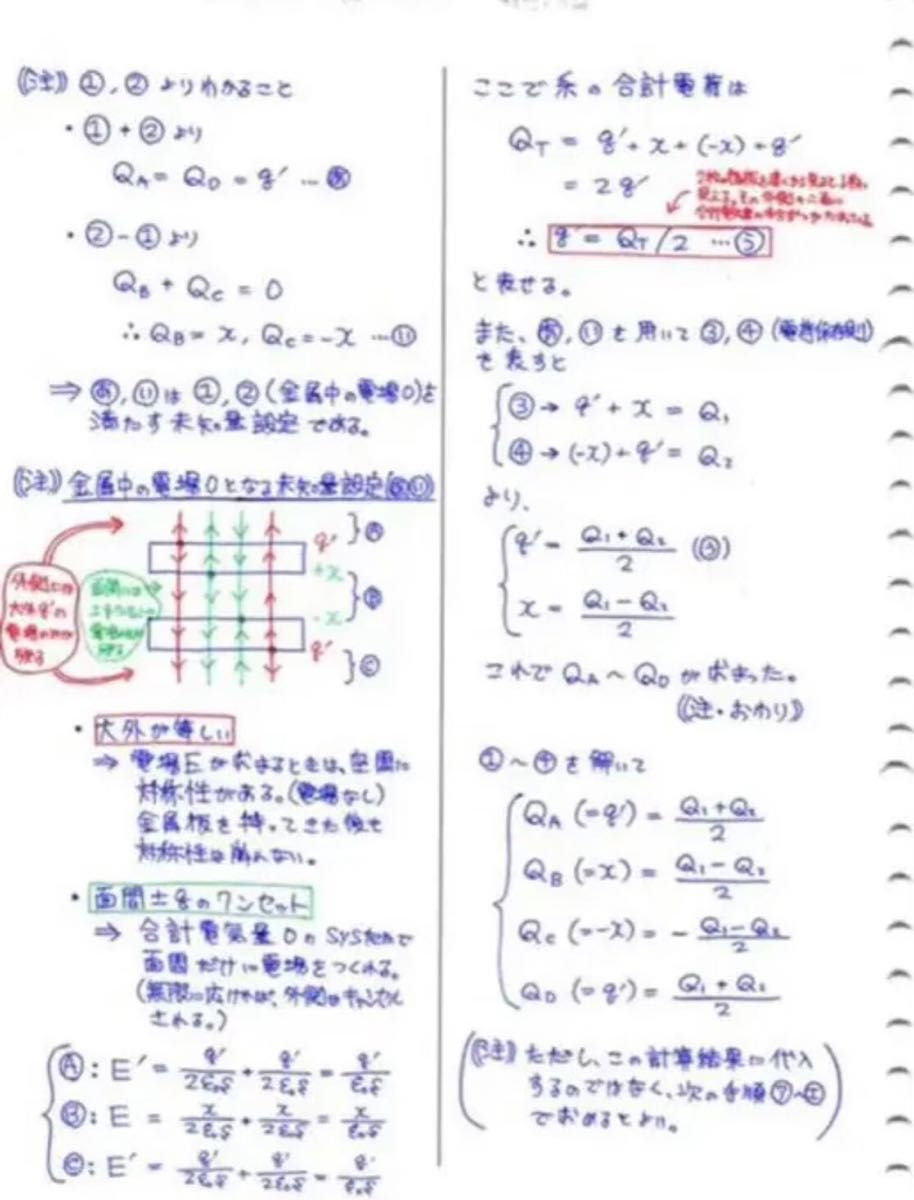 《注》①,②よりわかること
・①+②より
Q_A = Q_D = q' … あ
・②-①より
Q_B + Q_C = 0
∴ Q_B = x, Q_C = -x … い
⇒ あ,いは①,②(金属中の電場0)を
満たす未知量設定である。
《注》金属中の電場0となる未知量設定(あい)
q' }Ⓐ
+x
}Ⓑ
-x
q' }Ⓒ
外側には
大外q'の
電場のみが
残る
電場のみが
残る
・大外が等しい
⇒ 電場Eが求まるときは、空間に
対称性がある。(電場なし)
金属板を持ってきた後も
対称性は崩れない。
・面間±qのワンセット
⇒ 合計電気量0のsystemで
面間だけに電場をつくれる。
(無限に広ければ、外側はキャンセル
される。)
Ⓐ: E' = q'/2ε₀S + q'/2ε₀S = q'/ε₀S
Ⓑ: E = x/2ε₀S + x/2ε₀S = x/ε₀S
Ⓒ: E' = q'/2ε₀S + q'/2ε₀S = q'/ε₀S
ここで系の合計電荷は
Q_T = q' + x + (-x) + q'
= 2q'
∴ q' = Q_T/2 … ⑤
と表せる。
また、あ,いを用いて③,④(電荷保存則)
を表すと
③→ q' + x = Q₁
④→ (-x) + q' = Q₂
より、
q' = Q₁+Q₂/2 (⑤)
x = Q₁-Q₂/2
これで Q_A ~ Q_D が求まった。
《注・おわり》
①~④を解いて
Q_A (=q') = Q₁+Q₂/2
Q_B (=x) = Q₁-Q₂/2
Q_C (=-x) = - Q₁-Q₂/2
Q_D (=q') = Q₁+Q₂/2
《注》ただし、この計算結果に代入
するのではなく、次の手順
で求めるとよい。